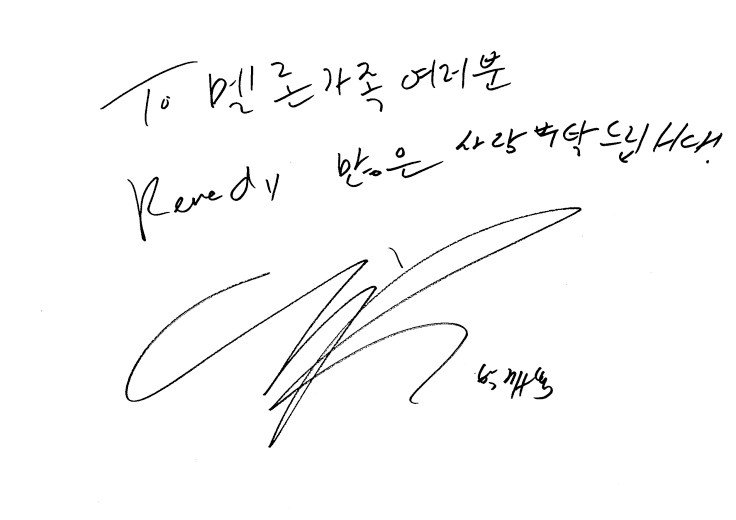 To 멜론가족 여러분
Remedy 많은 사랑 부탁드립니다!